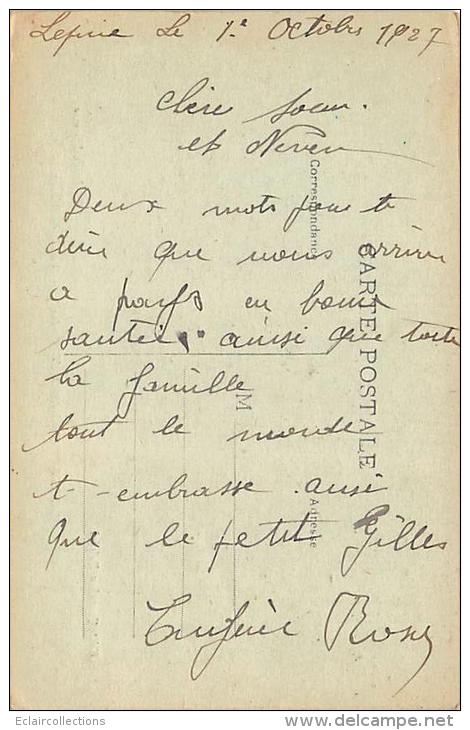 Lepine Le 1e Octobre 1927
chère soeur
et Neveu
Deux mots pour te
dire que nous arrivn
a pays en bonne
santé ainsi que toute
la famille
tout le monde
t-embrasse ainsi
que le petit Gilles
Eugène Rose
Correspondance
CARTE POSTALE
M
Adresse
Eclaircollections
www.delcampe.net